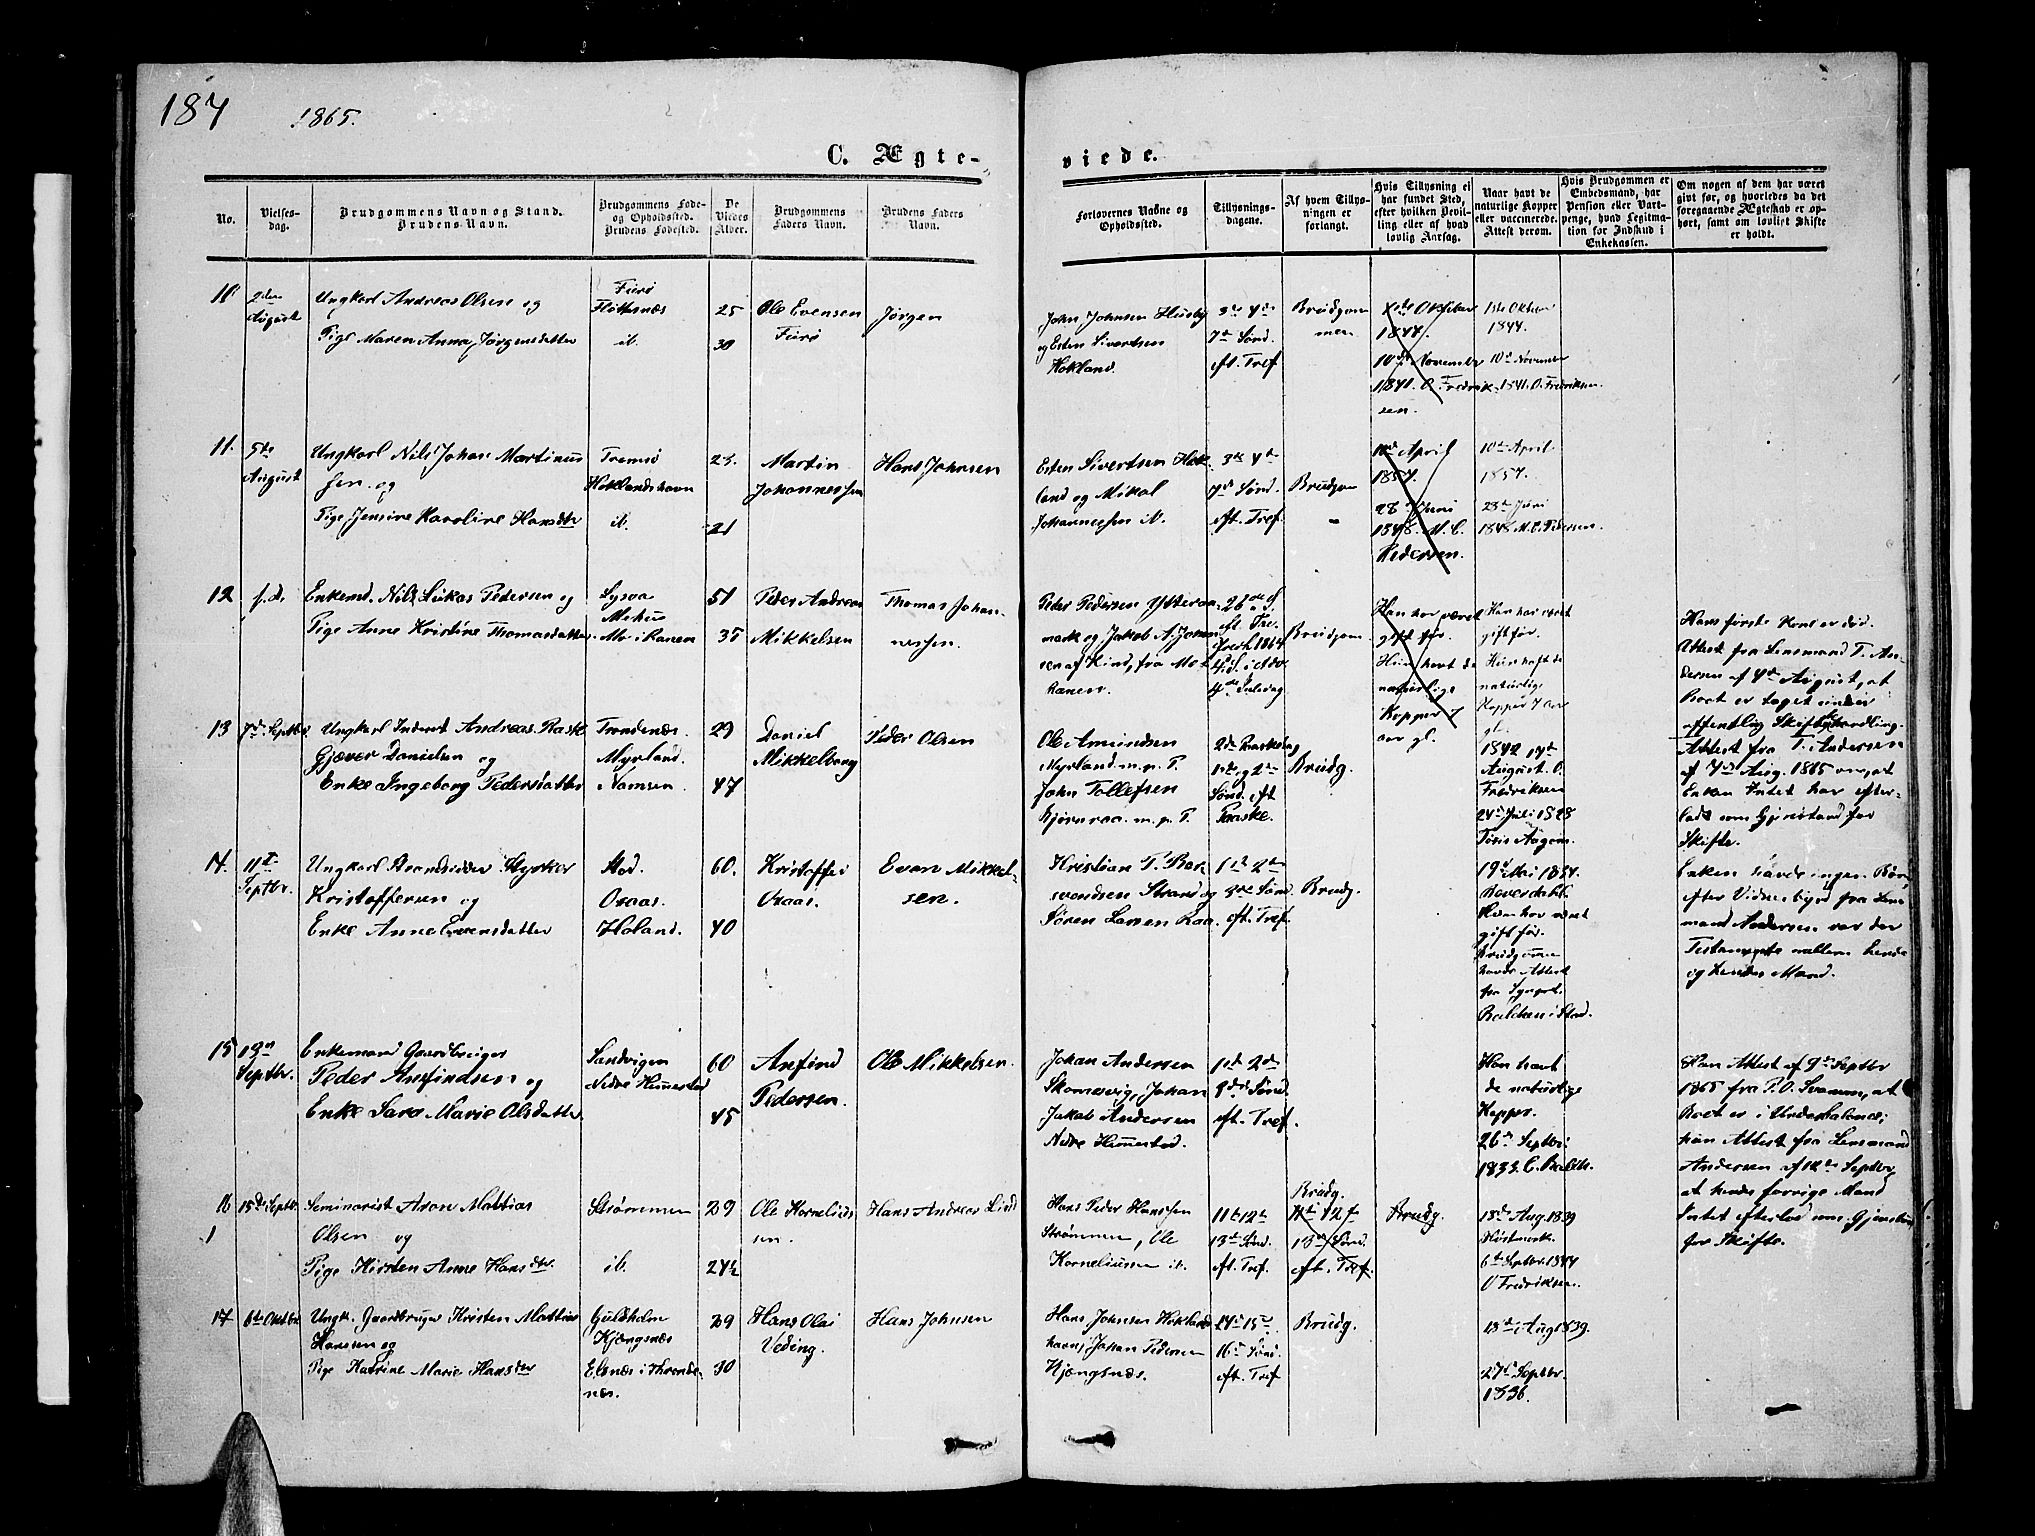 187
1865.
C. Ægte-
viede.
No.
Vielses-
dag.
Brudgommens Navn og Stand.
Brudens Navn.
Brudgommens Føde-
og Opholdssted.
Brudens Fødested.
De
Viedes
Alder.
Brudgommens
Faders Navn.
Brudens Faders
Navn.
Forlovernes Navne og
Opholdssted.
Tillysnings-
dagene.
Af hvem Tillys-
ningen er
forlangt.
Hvis Tillysning ei
har fundet Sted,
efter hvilken Bevil-
ling eller af hvad
lovlig Aarsag.
Naar havt de
naturlige Kopper
eller vaccinerede.
Attest derom.
Hvis Brudgommen er
Embedsmand, har
Pension eller Vart-
penge, hvad Legitima-
tion for Indskud i
Enkekassen.
Om nogen af dem har været
gift før, og hvorledes da det
foregaaende Ægteskab er op-
hørt, samt om lovligt Skifte
er holdt.
10
2den
August
Ungkarl Andreas Olsen og
Pige Maren Anna Jørgensdatter
ib.
25
30
Ole Evensen
Jørgen
John Johnsen Husby
og Esten Sivertsen
Hokland.
3de 4de
7de Sønd.
eft. Tref
Brudgom
men
1ste Oktober
1844.
10de November
1841. O. Fredrik-
sen.
1ste Oktbr
1844.
10de November
1841. O. Fredriksen.
11.
5te
August
Ungkarl Nils Johan Martinus
sen og
Pige Jensine Karoline Hansdtr
Tromsø
Hoklandshavn
ib.
23.
21
Martin
Johannessen
Hans Johnsen
Esten Sivertsen Hok
land og Mikal
Johannessen ib.
3de 4de
7de Sønd.
eft. Tref
Brudgom
10de April
1857.
28 Juni
1848. M. C.
Pedersen.
10de April
1857.
28de Juni
1848 M. C. Pedersen.
12
s.d.
Enkemd. Nils Lukas Pedersen og
Pige Anne Kristine Thomasdatter.
Mo i Ranen
51
35
Peder Andreas
Mikkelsen
Thomas Johan-
nessen.
Peter Pedersen Ytteraa
mark og Jakob A. Johan
sen af Kind, fra Mo i
Ranen.
26de S.
eft. Tre-
fredh. 1864
4de Juledag
Brudgom
Han har været
gift før.
Hun havt de
naturlige
Kopper 7
aar gl.
Han har været
gift før.
Hun havt de
naturlige
Kopper 7 aar
gl.
Hans første Kone er død.
Attest fra Lensmand T. An-
dersen af 4de August, at
Boet er taget under
offentlig Skiftebehandling.
13
7de Septbr
Ungkarl Inderst Andreas Rask
Gjæver Danielsen og
Enke Ingeborg Pedersdatter
Trondenæs.
Myrland.
Namsen.
29
47
Daniel
Mikkelborg
Peder Olsen
Ole Amundsen
Myrland. m. p. P.
John Tollefsen
Bjørnraa. m. p. P.
2de Paaskedag
1ste og 2den
Sønd. eft
Paaske.
Brudg.
1842 19de
August. O.
Fredriksen
24de Juli 1828
Attest fra T. Andersen
af 7de Aug. 1865 om, at
Enken Intet har efter-
ladt som Gjenstand for
Skifte.
14
11te
Septbr.
Ungkarl Styrker
Kristoffersen og
Enke Anne Evensdatter
Stod.
Osaas.
Høland.
60.
40
Kristoffer
Osaas.
Even Mikkel-
sen.
Kristian P. Bar
Strand og
Søren Larsen Raa.
1ste 2den
3de Sønd.
eft. Tref.
Brudg.
19de Mai 1834.
Hun har været
gift før.
Brudgommen
havde Attest
fra
i Stod.
Enken havde ingen Børn,
efter Vidnesbyrd fra Lens
mand Andersen var der
Testamente mellem hende
og hendes Mand.
15
13de
Septbr.
Enkemand Gaardbruger
Peder Anfindsen og
Enke Sara Marie Olsdatter.
Sandvigen
Nedre Hemmestad
60
45
Anfind
Pedersen.
Ole Mikkelsen.
Johan Andersen
Skomovig, Johan
Jakob Andersen
Nedre Hemmestad.
1ste 2den
3de Sønd.
eft. Tref.
Han havt
de naturlige
Kopper.
26de Septbr.
1833. C. Baldtz.
Han Attest af 9de Septbr
1865 fra P. O. Svanum, at
Boet er i Underbalance;
hun Attest fra Lensmand
Andersen af 12te Septbr,
at hendes forrige Mand
Intet efterlod som Gjenstand
for Skifte.
16
15de Septbr
Seminarist Aron Mattias
Olsen og
Pige Kirsten Anne Hansdtr.
Strømmen
ib.
29
24½
Ole Kornelius
sen.
Hans Andreas Lind
Hans Peder Hanssen
Strømmen, Ole
Korneliussen ib.
11te 12te
13de Sønd.
eft. Tref.
Brudg.
11te 12te
13de Sønd.
eft. Tref.
Brudg.
18de Aug. 1839
Høstmark.
6te Septbr. 1844
O Fredriksen.
17
6te Oktbr
Ungk. Gaardbruger Kristen Mattias
Hanssen og
Pige Katrine Marie Hansdtr
Guldholm
Kjøngsnæs
Elsnæs i Thronde-
næs.
29
30
Hans Olai
Veding.
Hans Johnsen
Hans Johnsen Hoklands
havn, Johan Pedersen
Kjøngsnæs.
14de 15de
16de Sønd.
eft. Tref
Brudg.
18de Aug 1839.
27de Septbr.
1836.